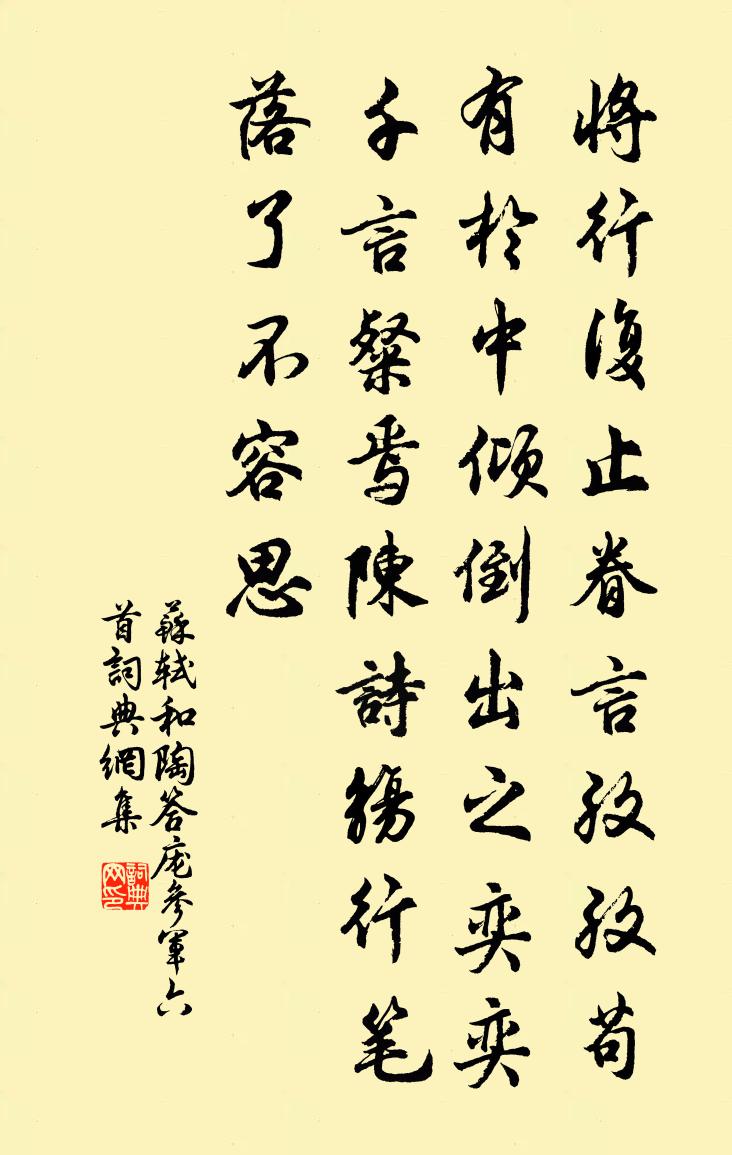 將行復止眷言孜孜苟
有於中傾倒出之奕奕
千言粲焉陳詩觴行笔
落了不容思
蘇軾和陶答庞參軍六
首詞典網集
詞典
网印